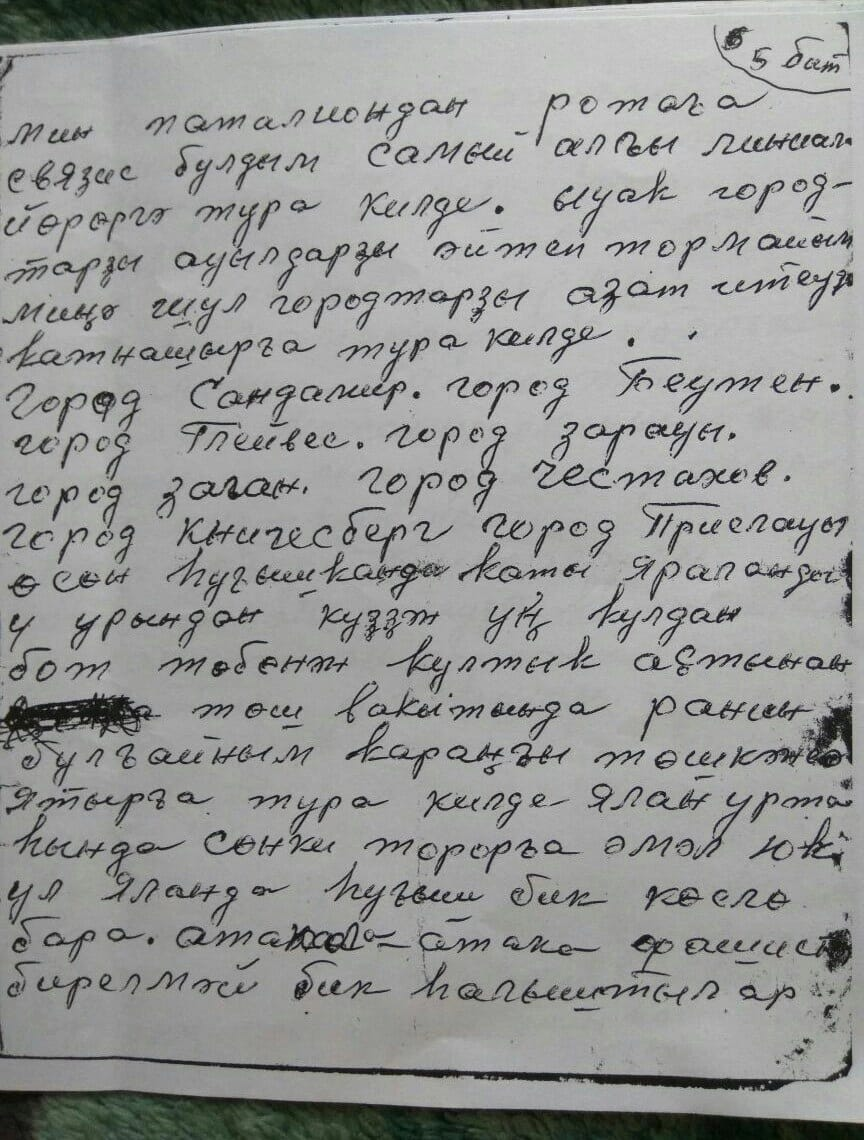 5 бит
мин паталиондан ротаға
связис булдым самый алғы линиал
йөрөргә тура килде. ыуак город-
тарҙы ауылдарҙы әйтеп тормайым
миңә шул городтарҙы аҙат итеүҙә
катнашырға тура килде.
Город Сандамир. город Беутен.
город Глейвес. город зарауы.
город заган. город Честахов.
город Кничесберг город Приелауы
өсөн һуғышканда каты яраланды
у урындан күҙҙән уң кулдан
бот төбөнән култык аҫтынан
төш вакытында ранин
булғайным караңғы төшкәнсә
ятырға тура килде ялан урта
һында сөнки торорға әмәл юк
ул яланда һуғыш бик көслө
бара. атака-атака фашист
бирелмәй бик һағыштылар